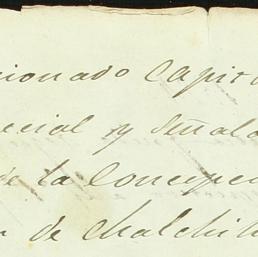 cionado Capit
ecial y Señala
de la Concepci
n de Chalchih